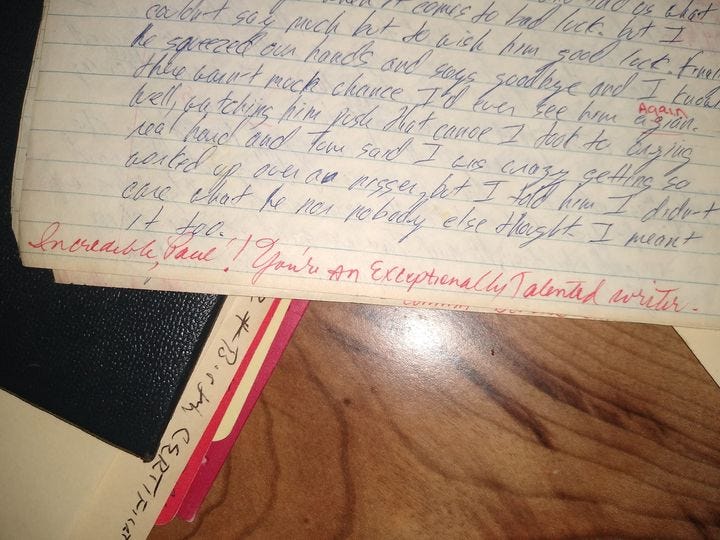 when it comes to bad luck. but I
couldn't say much but to wish him good luck. Finally
he squeezed our hands and says goodbye and I knowd
there wasn't much chance I'd ever see him agian.
Again
Well, watching him push that canoe I took to crying
real hard and Tom said I was crazy getting so
worked up over a nigger, but I told him I didn't
care what he nor nobody else thought. I meant
it too.
Incredible, Paul! You're An Exceptionally Talented writer.
CERTIFICAT